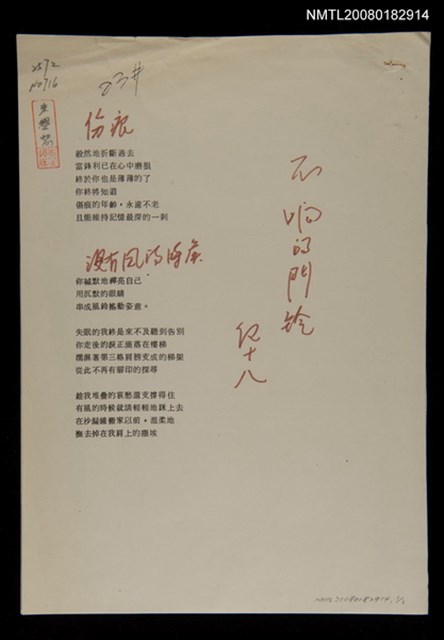 NMTL20080182914
2572
No716
傷痕
毅然地折斷過去
當鋒利已在心中磨損
終於你也是薄薄的了
你終將知道
傷痕的年齡，永遠不老
且能維持記憶最深的一刺
沒有風的時候
你緘默地擦亮自己
用沉默的眼睛
串成風鈴搖動姿意。
失眠的我終是來不及聽到告別
你走後的淚正滴落在樓梯
濡濕著第三格肩膀支成的梯架
從此不再有腳印的探尋
趁我堆疊的哀愁還支撐得住
有風的時候就請輕輕地踩上去
在沙漏鐘搬家以前，溫柔地
撫去掉在我肩上的塵埃
不响的門鈴
紀十八
NMTL20080182914